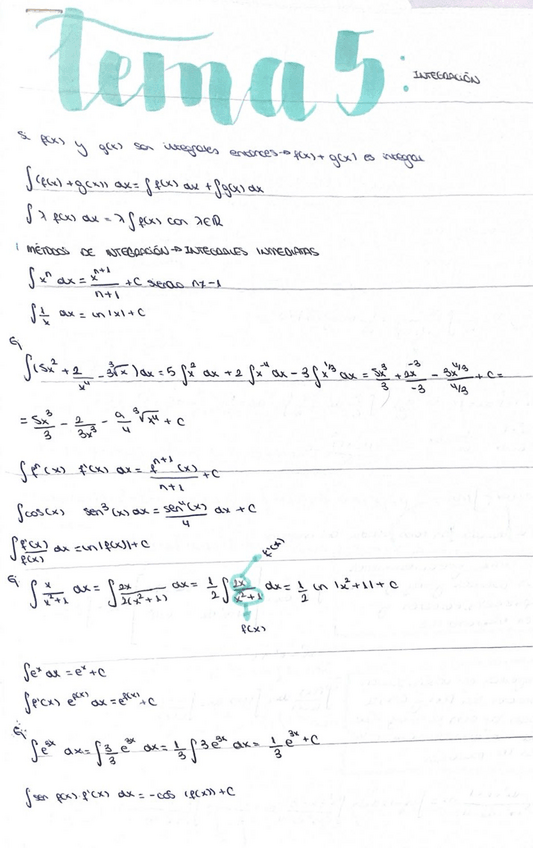 Tema 5: INTEGRACIÓN
Si f(x) y g(x) son integrales entonces → f(x) + g(x) es integral
∫(f(x) + g(x)) dx = ∫f(x) dx + ∫g(x) dx
∫λ f(x) dx = λ∫f(x) con λ∈ℝ
1 MÉTODOS DE INTEGRACIÓN → INTEGRALES INMEDIATAS
∫xⁿ dx = xⁿ⁺¹/(n+1) + C siendo n≠-1
∫1/x dx = ln|x| + C
Ej
∫(5x² + 2/x⁴ - 3∛x) dx = 5∫x² dx + 2∫x⁻⁴ dx - 3∫x^(1/3) dx = 5x³/3 + 2x⁻³/-3 - 3x^(4/3)/(4/3) + C =
= 5x³/3 - 2/3x³ - 9/4 ∛x⁴ + C
∫fⁿ(x) f'(x) dx = fⁿ⁺¹(x)/(n+1) + C
∫cos(x) sen³(x) dx = sen⁴(x)/4 dx + C
∫f'(x)/f(x) dx = ln|f(x)| + C
f'(x)
Ej ∫x/(x²+1) dx = ∫2x/(2(x²+1)) dx = 1/2 ∫2x/(x²+1) dx = 1/2 ln|x²+1| + C
f(x)
∫eˣ dx = eˣ + C
∫f'(x) e^(f(x)) dx = e^(f(x)) + C
Ej.
∫e^(3x) dx = ∫3/3 e^(3x) dx = 1/3 ∫3e^(3x) dx = 1/3 e^(3x) + C
∫sen f(x) f'(x) dx = -cos (f(x)) + C